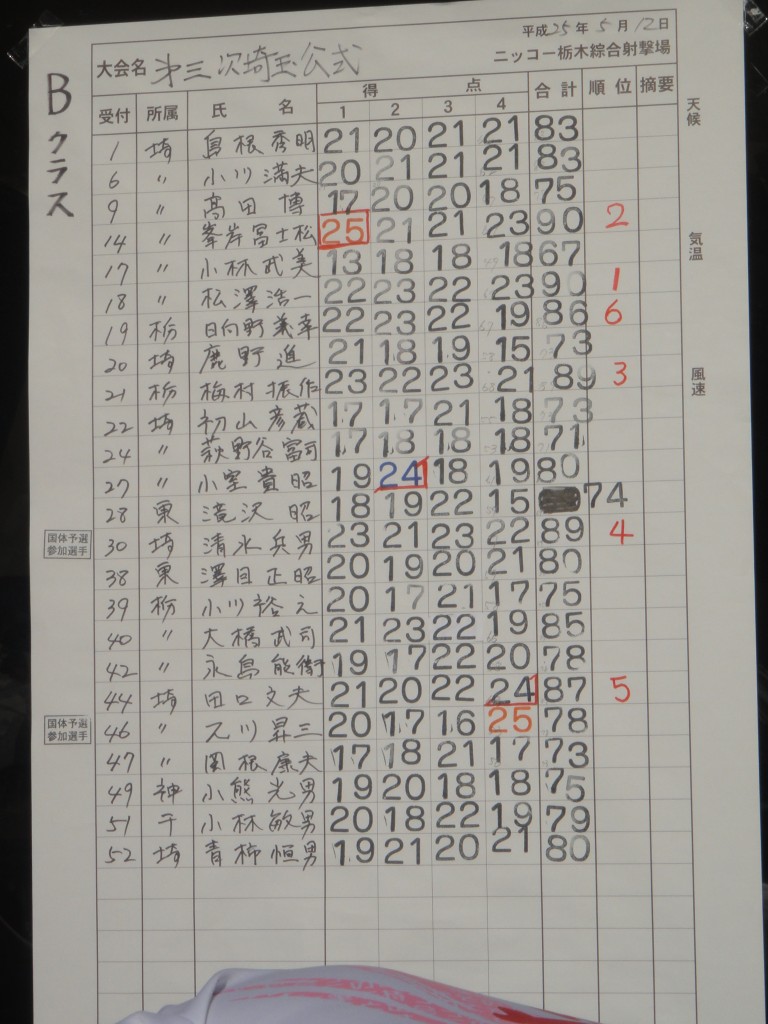 平成25年5月12日
大会名 第三次埼玉公式 ニッコー栃木綜合射撃場
Bクラス
受付 所属 氏名 得点 合計 順位 摘要
1 2 3 4
天候
気温
風速
1 埼 島根秀明 21 20 21 21 83
6 〃 小川満夫 20 21 21 21 83
9 〃 高田博 17 20 20 18 75
14 〃 峯岸冨士松 25 21 21 23 90 2
17 〃 小林武美 13 18 18 18 67
18 〃 松澤浩一 22 23 22 23 90 1
19 栃 日向野義幸 22 23 22 19 86 6
20 埼 鹿野進 21 18 19 15 73
21 栃 梅村振作 23 22 23 21 89 3
22 埼 初山彦蔵 17 17 21 18 73
24 〃 萩野谷富司 17 18 18 18 71
27 〃 小室貴昭 19 24 18 19 80
28 東 滝沢昭 18 19 22 15 74
国体予選参加選手 30 埼 清水兵男 23 21 23 22 89 4
38 東 澤目正昭 20 19 20 21 80
39 栃 小川裕之 20 17 21 17 75
40 〃 大橋武司 21 23 22 19 85
42 〃 永島能衛 19 17 22 20 78
44 埼 田口文夫 21 20 22 24 87 5
国体予選参加選手 46 〃 川昇三 20 17 16 25 78
47 〃 関根廉夫 17 18 21 17 73
49 神 小熊光男 19 20 18 18 75
51 千 小林敏男 20 18 22 19 79
52 埼 青柿恒男 19 21 20 21 80